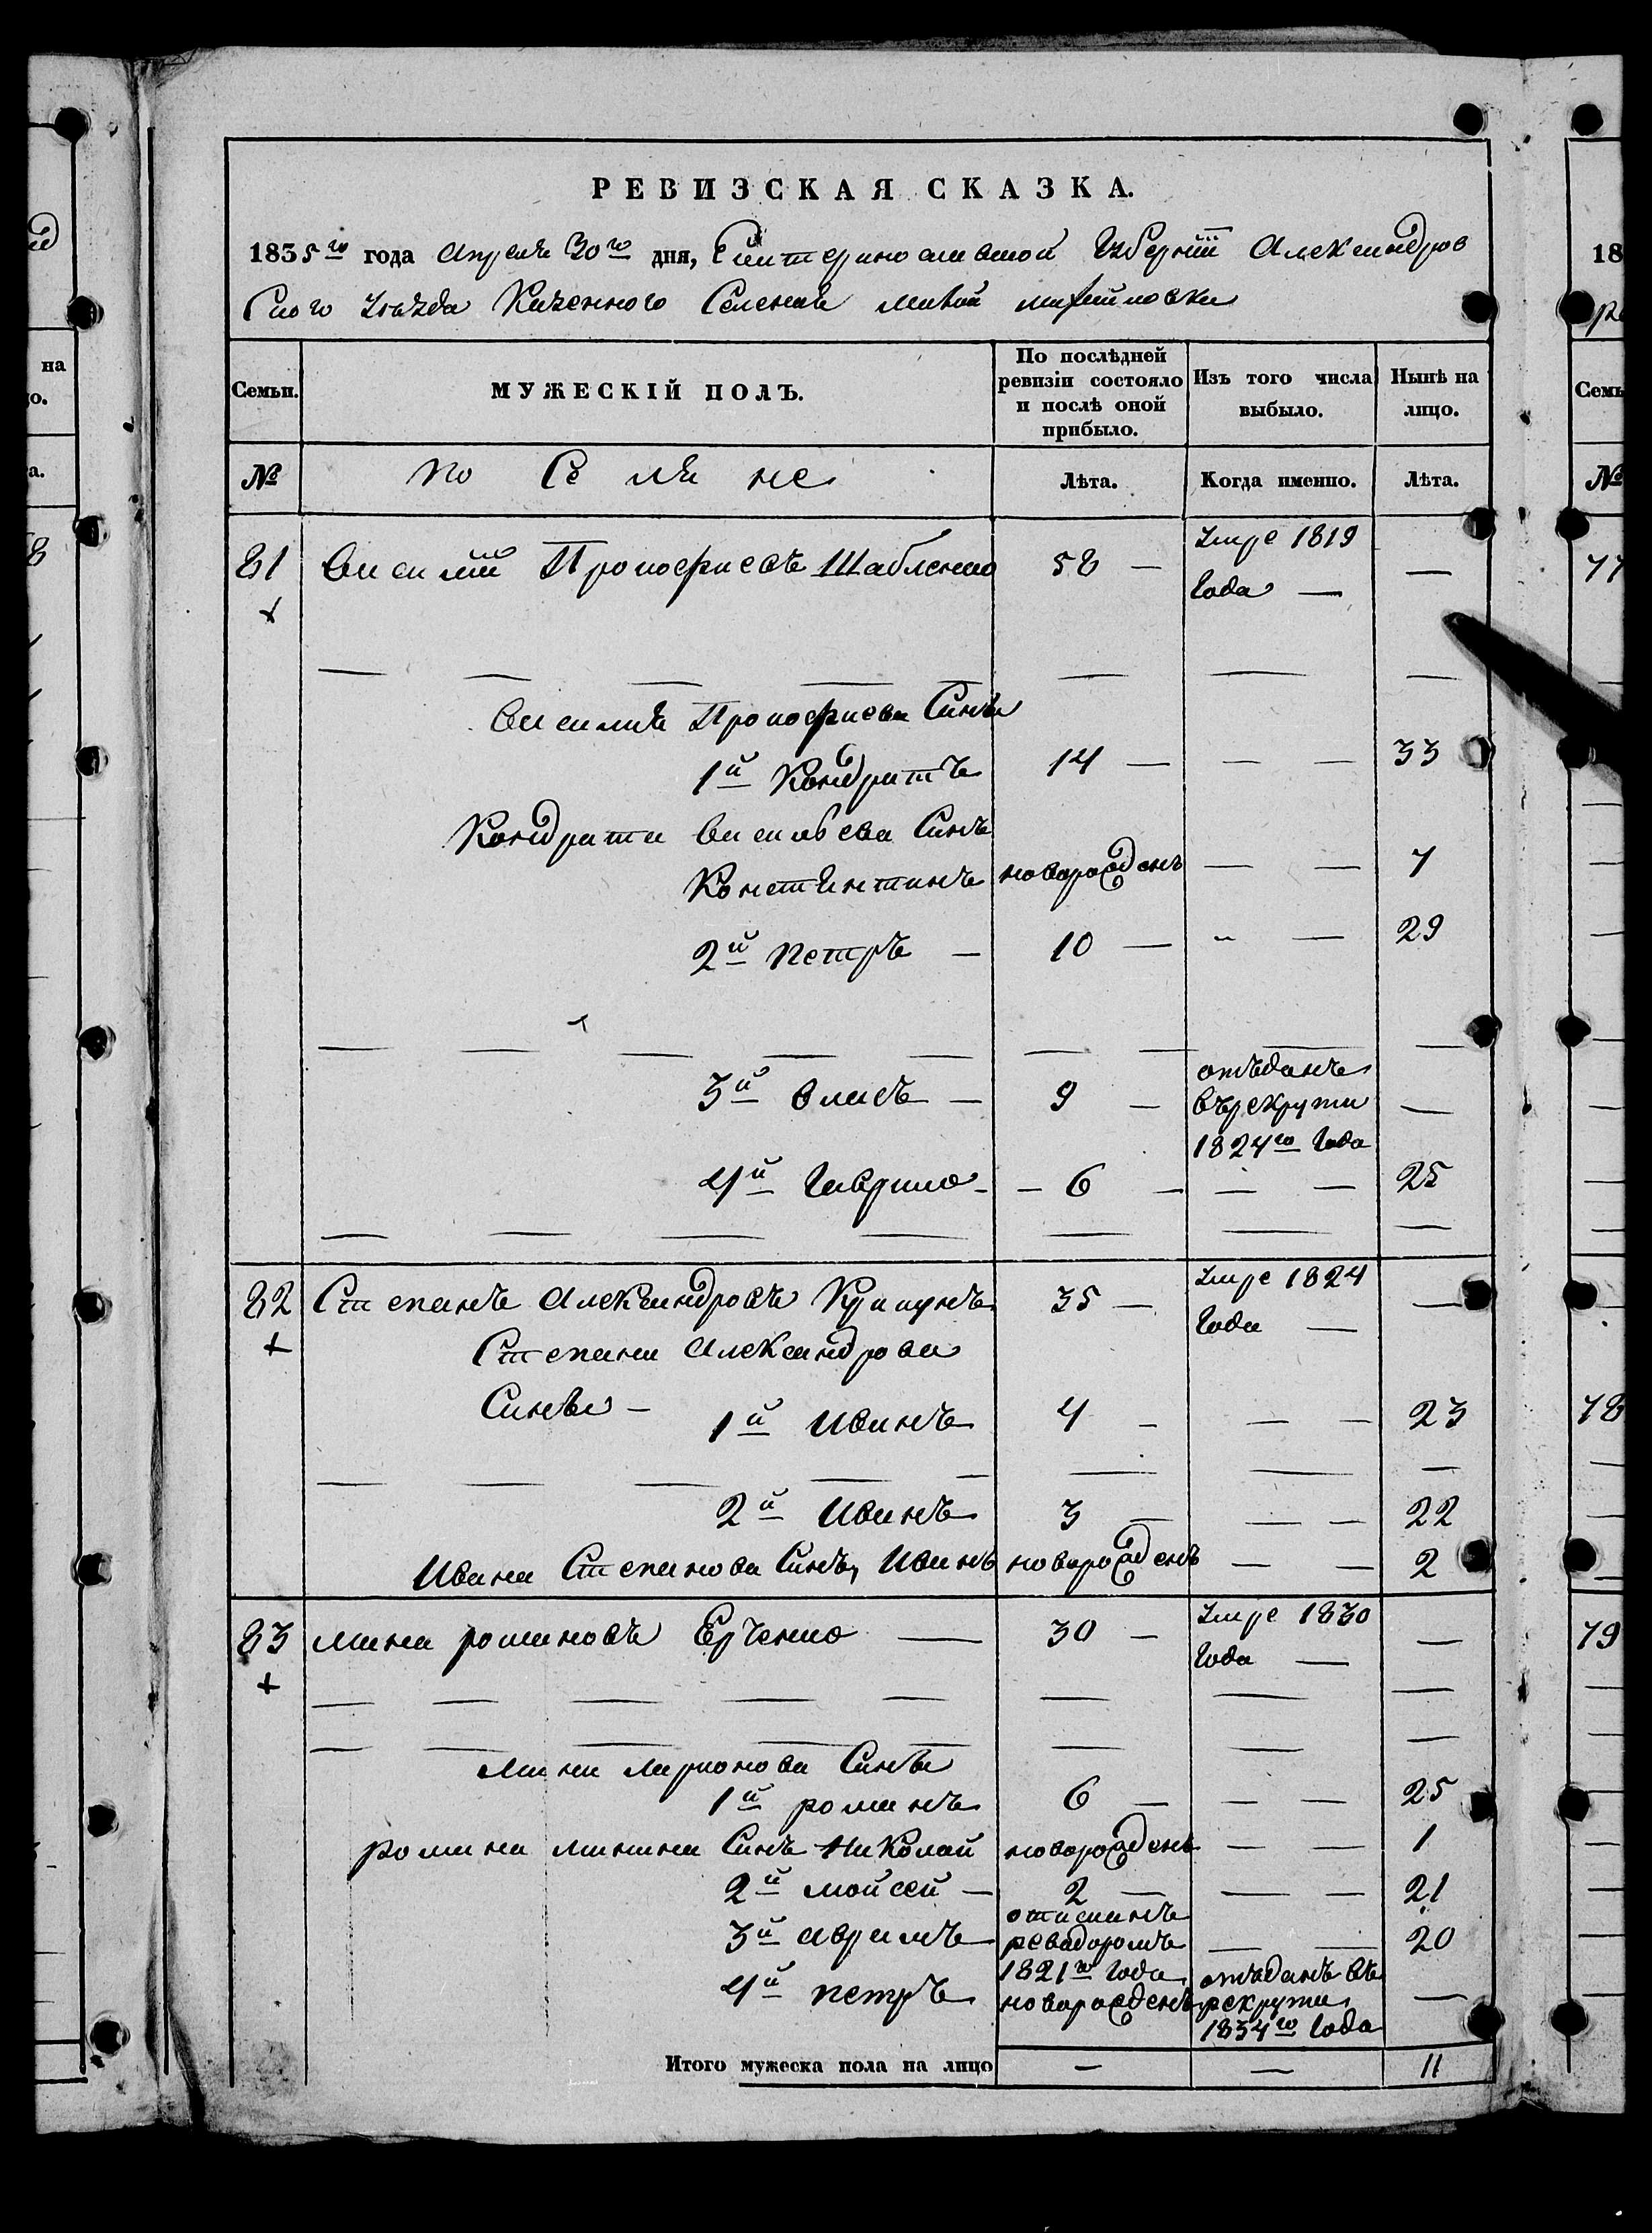 РЕВИЗСКАЯ СКАЗКА.
1835го года Апреля 30го дня, Екатеринославской Губернiи Александров
Ского Уезда Казенного Селения малой михайловки
Семьи. МУЖЕСКIЙ ПОЛЪ. По послѣдней ревизiи состояло и послѣ оной прибыло. Изъ того числа выбыло. Нынѣ на лицо.
№ поселяне Лѣта. Когда именно. Лѣта.
81 Василiй Прокофиевъ Шабленко 58 — Умре 1819 Года — —
Василия Прокофиева Сины
1й Кондратъ 14 — — — 33
Кондрата Васильева Синъ
Константинъ новорожденъ — — 7
2й петръ — 10 — — 29
3й власъ — 9 — отъданъ въ рекруты 1824го Года —
4й Гаврило — 6 — — — 25
82 Степанъ Александровъ 35 — Умре 1824 Года — —
Степана Александрова
Сины — 1й Иванъ 4 — — — 23
2й Иванъ 3 — — — 22
Ивана Степанова Синъ, Иванъ новорожденъ — — 2
83 мина романовъ Ерченко — 30 — Умре 1830 Года — —
Мини Ларионова Сины
1й романъ 6 — — — 25
романа минина Синъ Николай новорожденъ — — 1
2й мойсей — 2 — — — 21
3й аврамъ 1821го Года — — 20
4й петръ новорожденъ отъданъ въ рекруты 1834го Года —
Итого мужеска пола на лицо — — 11
на
о.
а.
18
Семь
№
77
78
79